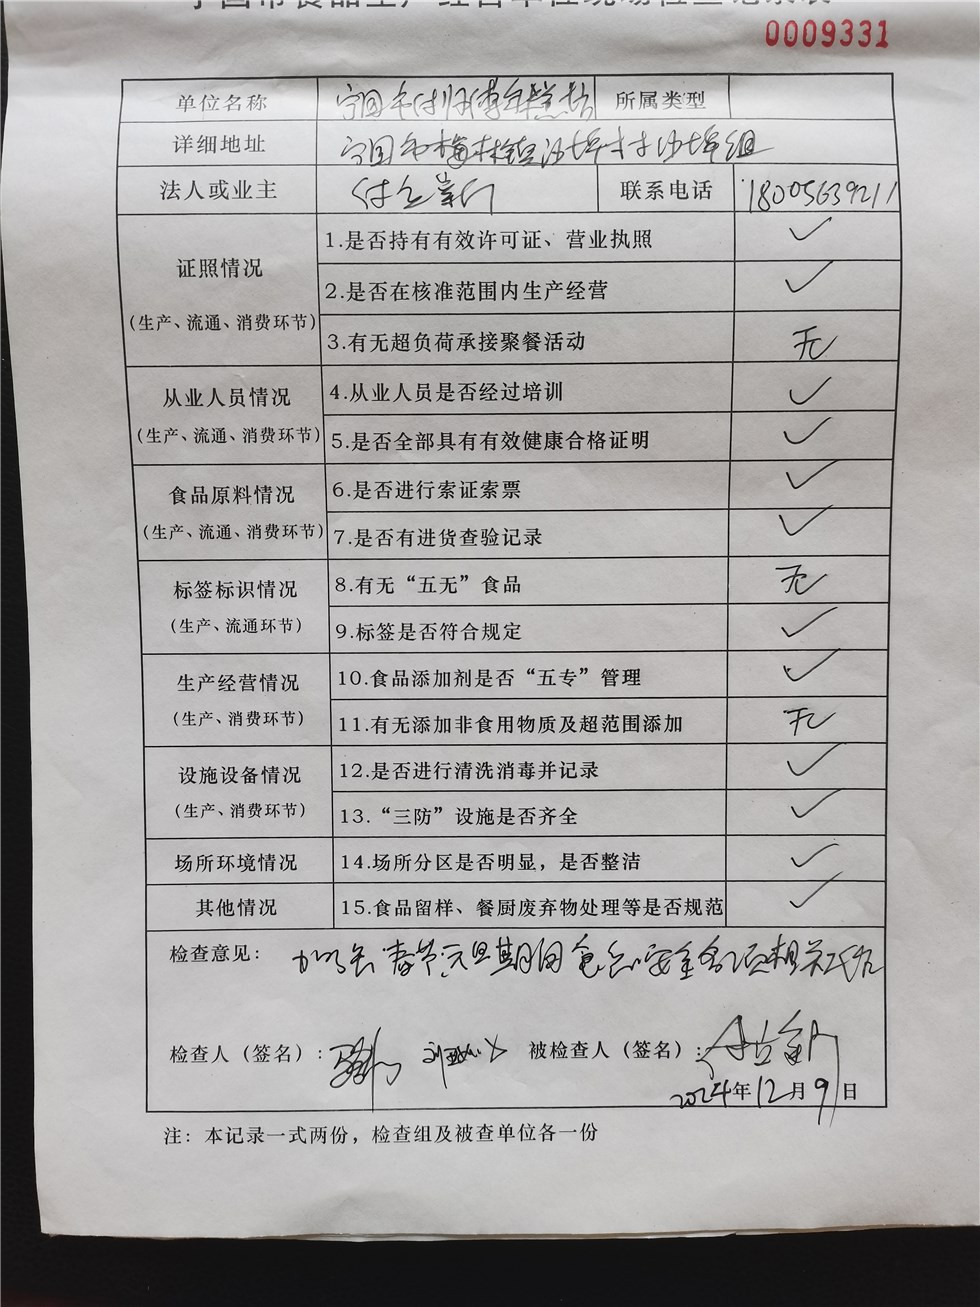 宁国市食品生产经营单位现场检查记录表
0009331
单位名称 宁国市付师傅年糕 所属类型
详细地址 宁国市梅林镇沙埠村沙埠组
法人或业主 联系电话 18005639211
证照情况
(生产、流通、消费环节)
1.是否持有有效许可证、营业执照 ✓
2.是否在核准范围内生产经营 ✓
3.有无超负荷承接聚餐活动 无
从业人员情况
(生产、流通、消费环节)
4.从业人员是否经过培训 ✓
5.是否全部具有有效健康合格证明 ✓
食品原料情况
(生产、流通、消费环节)
6.是否进行索证索票 ✓
7.是否有进货查验记录 ✓
标签标识情况
(生产、流通环节)
8.有无“五无”食品 无
9.标签是否符合规定 ✓
生产经营情况
(生产、消费环节)
10.食品添加剂是否“五专”管理 ✓
11.有无添加非食用物质及超范围添加 无
设施设备情况
(生产、消费环节)
12.是否进行清洗消毒并记录 ✓
13.“三防”设施是否齐全 ✓
场所环境情况 14.场所分区是否明显，是否整洁 ✓
其他情况 15.食品留样、餐厨废弃物处理等是否规范 ✓
检查意见: 春节元旦期间食品安全各项相关工作
检查人（签名）: 被检查人（签名）:
2024年12月9日
注: 本记录一式两份，检查组及被查单位各一份